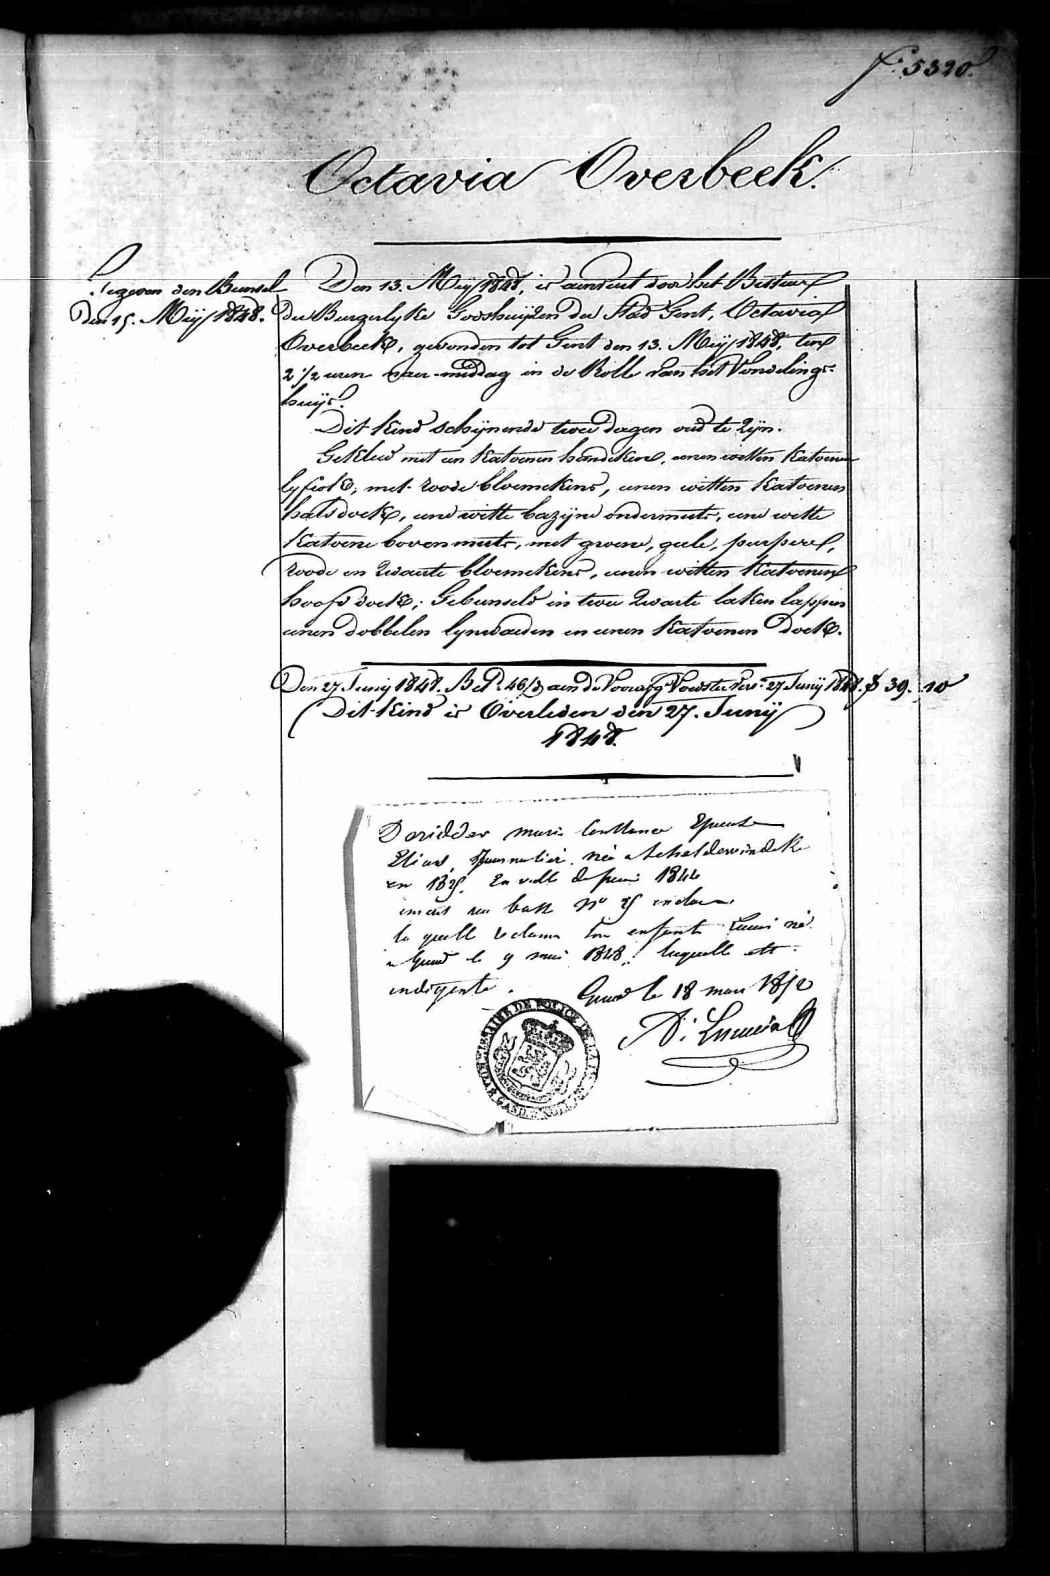 f.° 5320.
Octavia Overbeek.
Gegeven den Bunsel
den 15. Meij 1848.
Den 13. Meij 1848, is aenveert door het Bestuer
der Burgerlyke Godshuijzen der Stad Gent, Octavia
Overbeek, gevonden tot Gent den 13. Meij 1848, ten
2 1/2 uren naer-middag in de Rolle van het Vondelings-
huijs.
Dit kind schijnende twee dagen oud te zijn.
Gekleed met een katoenen hemdeken, eenen witten katoenen
lyfrok, met roode bloemekens, eenen witten katoenen
halsdoek, eene witte bazijne ondermuts, eene witte
katoene bovenmuts, met groene, geele, purpere,
roode en zwarte bloemekens, eenen witten katoenen
hoofddoek; Gebunseld in twee zwarte laken lappen
eenen dobbelen lynwaeden en eenen katoenen doek.
Den 27 Junij 1848. Bet. 46/3 aen de Voedster 27 Junij 1848. f 39. 10
Dit Kind is Overleden den 27. Junij
1848.
Deridder Marie Constance Epouse
Journalier, née a Schelderwindeke
en 1825. En ville depuis 1844
N° 25
la quelle réclame son enfant né
a Gand le 9 mai 1848. laquelle est
indigente.
Gand le 18 mars 1850
COMMISSAIRE DE POLICE DE LA
GAND